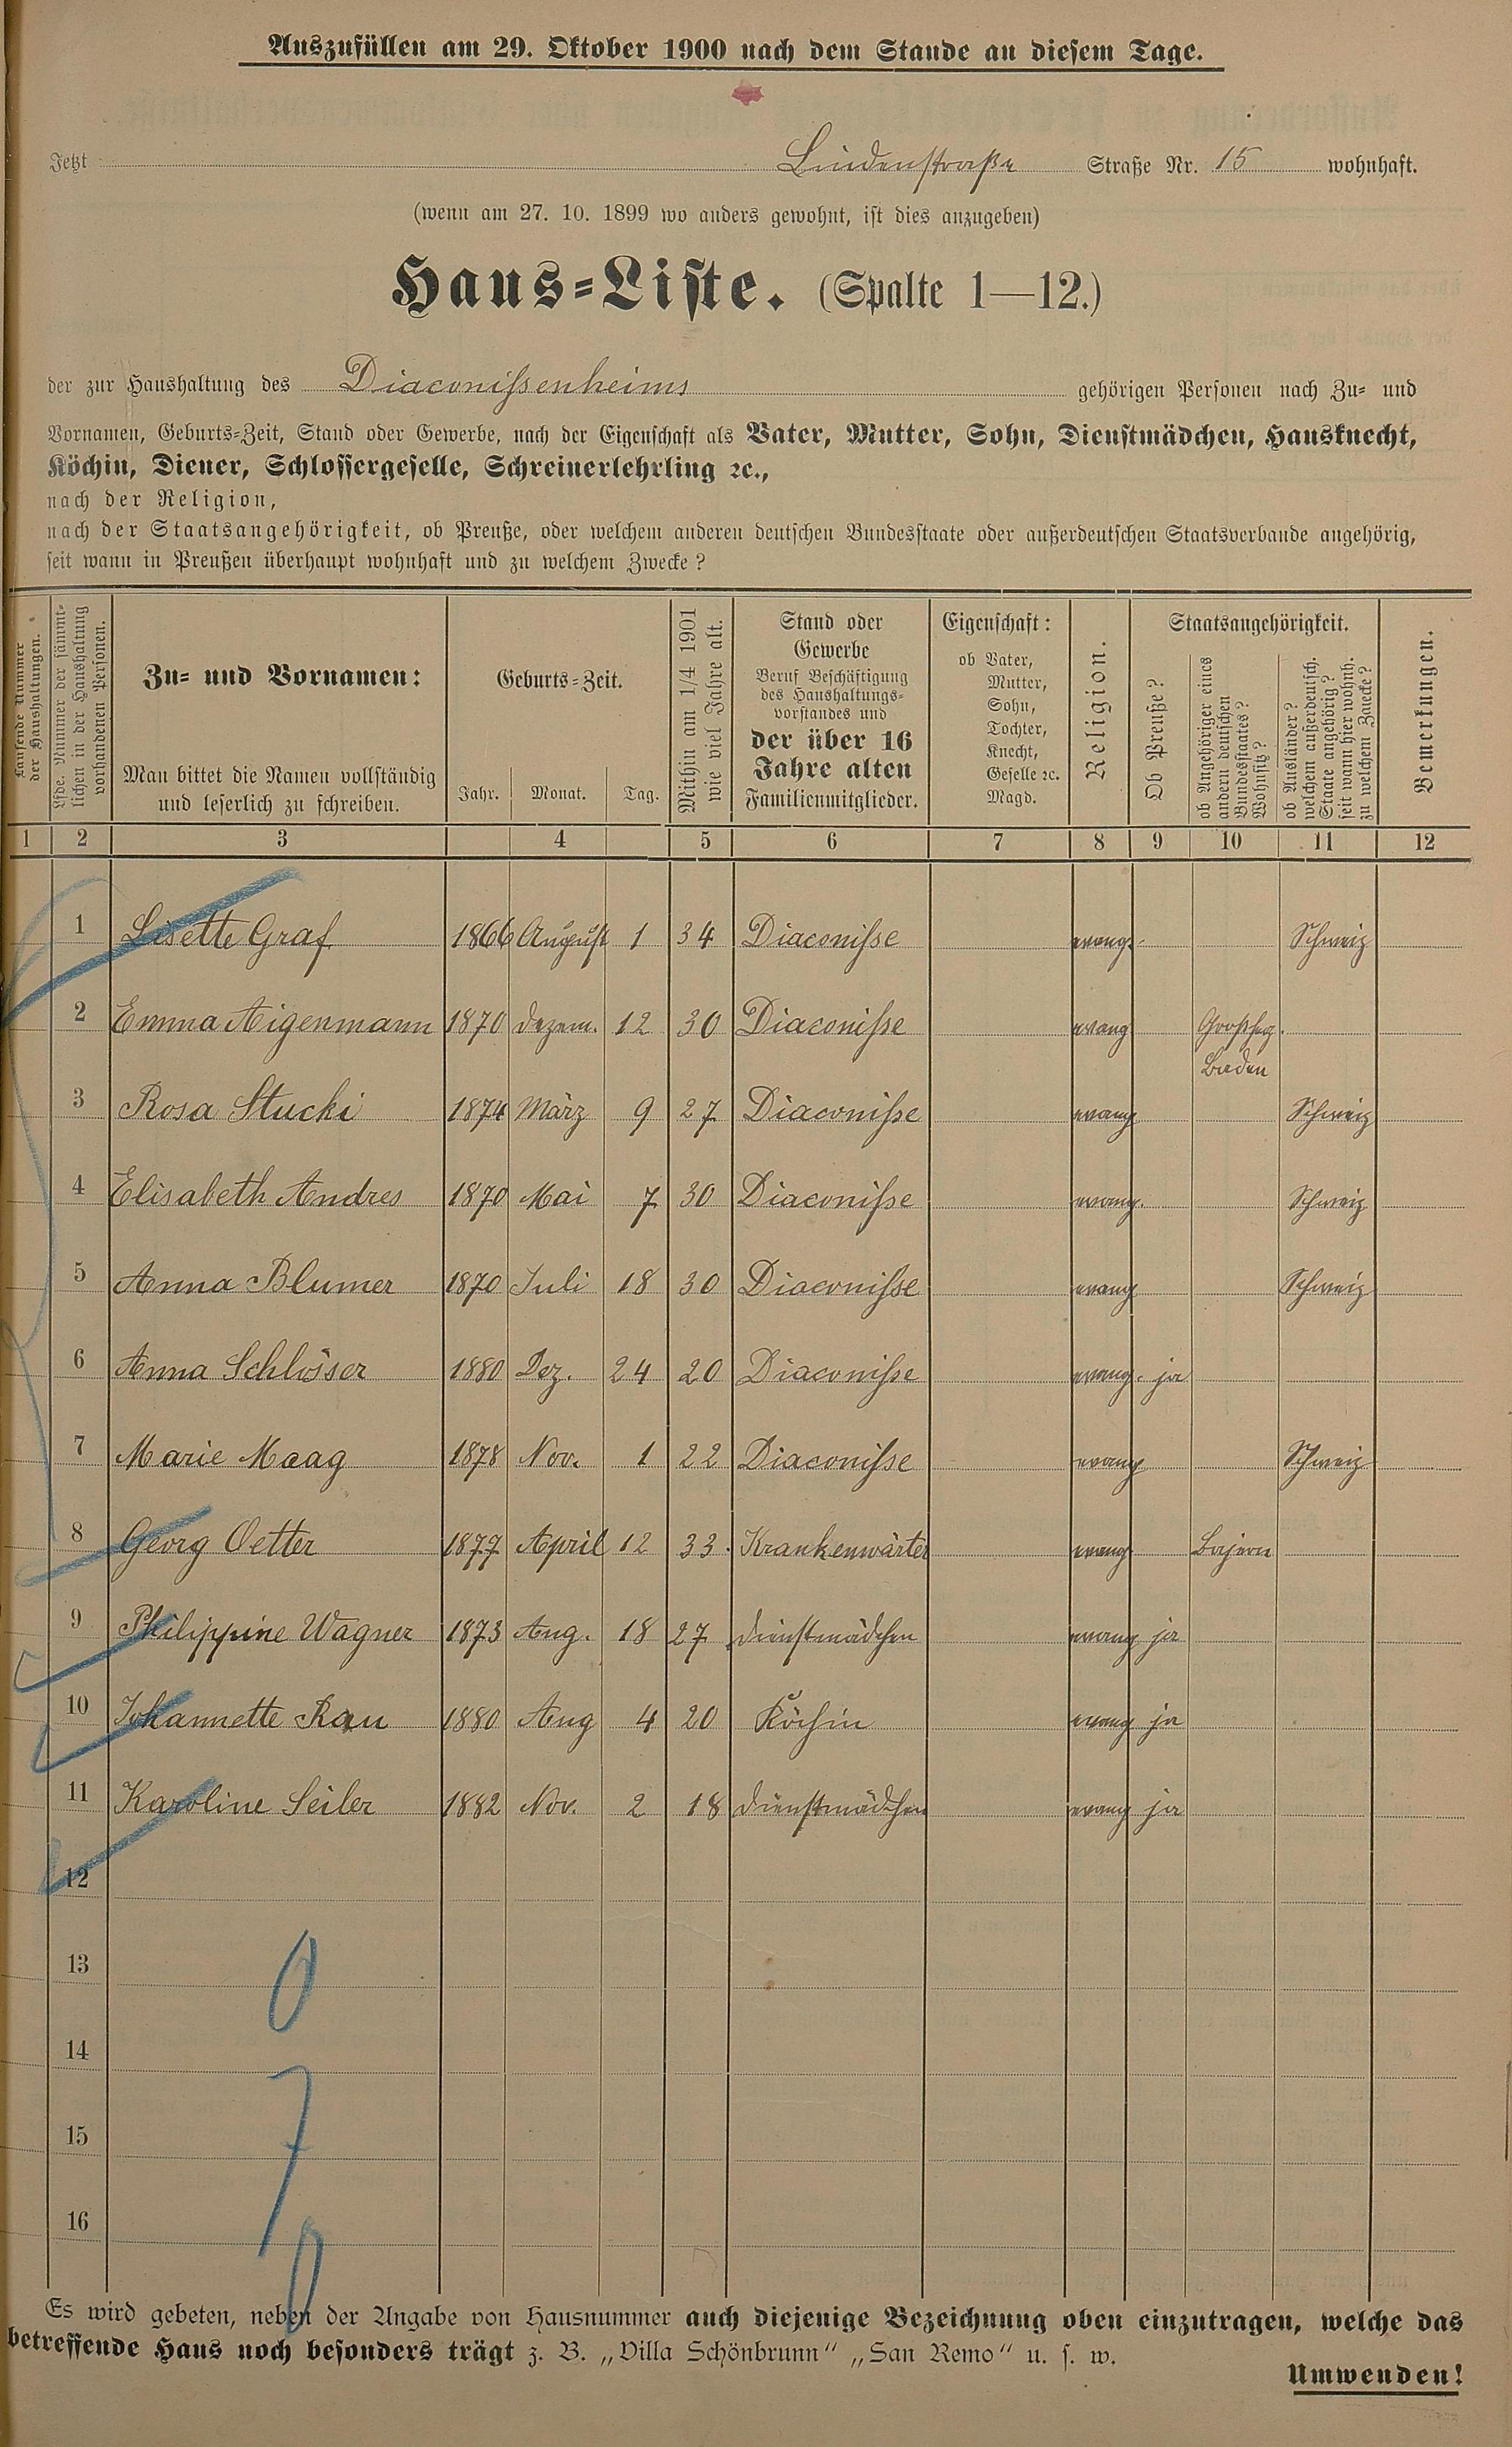 Auszufüllen am 29. Oktober 1900 nach dem Stande an diesem Tage.
Jetzt Lindenstraße Straße Nr. 15 wohnhaft.
(wenn am 27. 10. 1899 wo anders gewohnt, ist dies anzugeben)
Haus=Liste. (Spalte 1—12.)
der zur Haushaltung des Diaconißenheims gehörigen Personen nach Zu= und
Vornamen, Geburts=Zeit, Stand oder Gewerbe, nach der Eigenschaft als Vater, Mutter, Sohn, Dienstmädchen, Hausknecht,
Köchin, Diener, Schlossergeselle, Schreinerlehrling ꝛc.,
nach der Religion,
nach der Staatsangehörigkeit, ob Preuße, oder welchem anderen deutschen Bundesstaate oder außerdeutschen Staatsverbande angehörig,
seit wann in Preußen überhaupt wohnhaft und zu welchem Zwecke?
Laufende Nummer
der Haushaltungen.
Lfde. Nummer der sämmt=
lichen in der Haushaltung
vorhandenen Personen.
Zu= und Vornamen:
Man bittet die Namen vollständig
und leserlich zu schreiben.
Geburts=Zeit.
Jahr. Monat. Tag.
Mithin am 1/4 1901
wie viel Jahre alt.
Stand oder
Gewerbe
Beruf Beschäftigung
des Haushaltungs=
vorstandes und
der über 16
Jahre alten
Familienmitglieder.
Eigenschaft:
ob Vater,
Mutter,
Sohn,
Tochter,
Knecht,
Geselle ꝛc.
Magd.
Religion.
Staatsangehörigkeit.
Ob Preuße?
ob Angehöriger eines
andern deutschen
Bundesstaates?
Wohnsitz?
ob Ausländer?
welchem außerdeutsch.
Staate angehörig?
seit wann hier wohnh.
zu welchem Zwecke?
Bemerkungen.
1 2 3 4 5 6 7 8 9 10 11 12
1 Lisette Graf 1866 August 1 34 Diaconiße evang. Schweiz
2 Emma Aigenmann 1870 Dezem. 12 30 Diaconiße evang Großherz.
Baden
3 Rosa Stucki 1874 März 9 27 Diaconiße evang Schweiz
4 Elisabeth Andres 1870 Mai 7 30 Diaconiße evang. Schweiz
5 Anna Blumer 1870 Juli 18 30 Diaconiße evang Schweiz
6 Anna Schlösser 1880 Dez. 24 20 Diaconiße evang. ja
7 Marie Maag 1878 Nov. 1 22 Diaconiße evang Schweiz
8 Georg Oetter 1877 April 12 33 Krankenwärter evang Bajern
9 Philippine Wagner 1873 Aug. 18 27 Dienstmädchen evang ja
10 Johannette Rau 1880 Aug 4 20 Köchin evang ja
11 Karoline Seiler 1882 Nov. 2 18 Dienstmädchen evang ja
12
13
0
14
7
15
16
0
Es wird gebeten, neben der Angabe von Hausnummer auch diejenige Bezeichnung oben einzutragen, welche das
betreffende Haus noch besonders trägt z. B. „Villa Schönbrunn“ „San Remo“ u. s. w.
Umwenden!